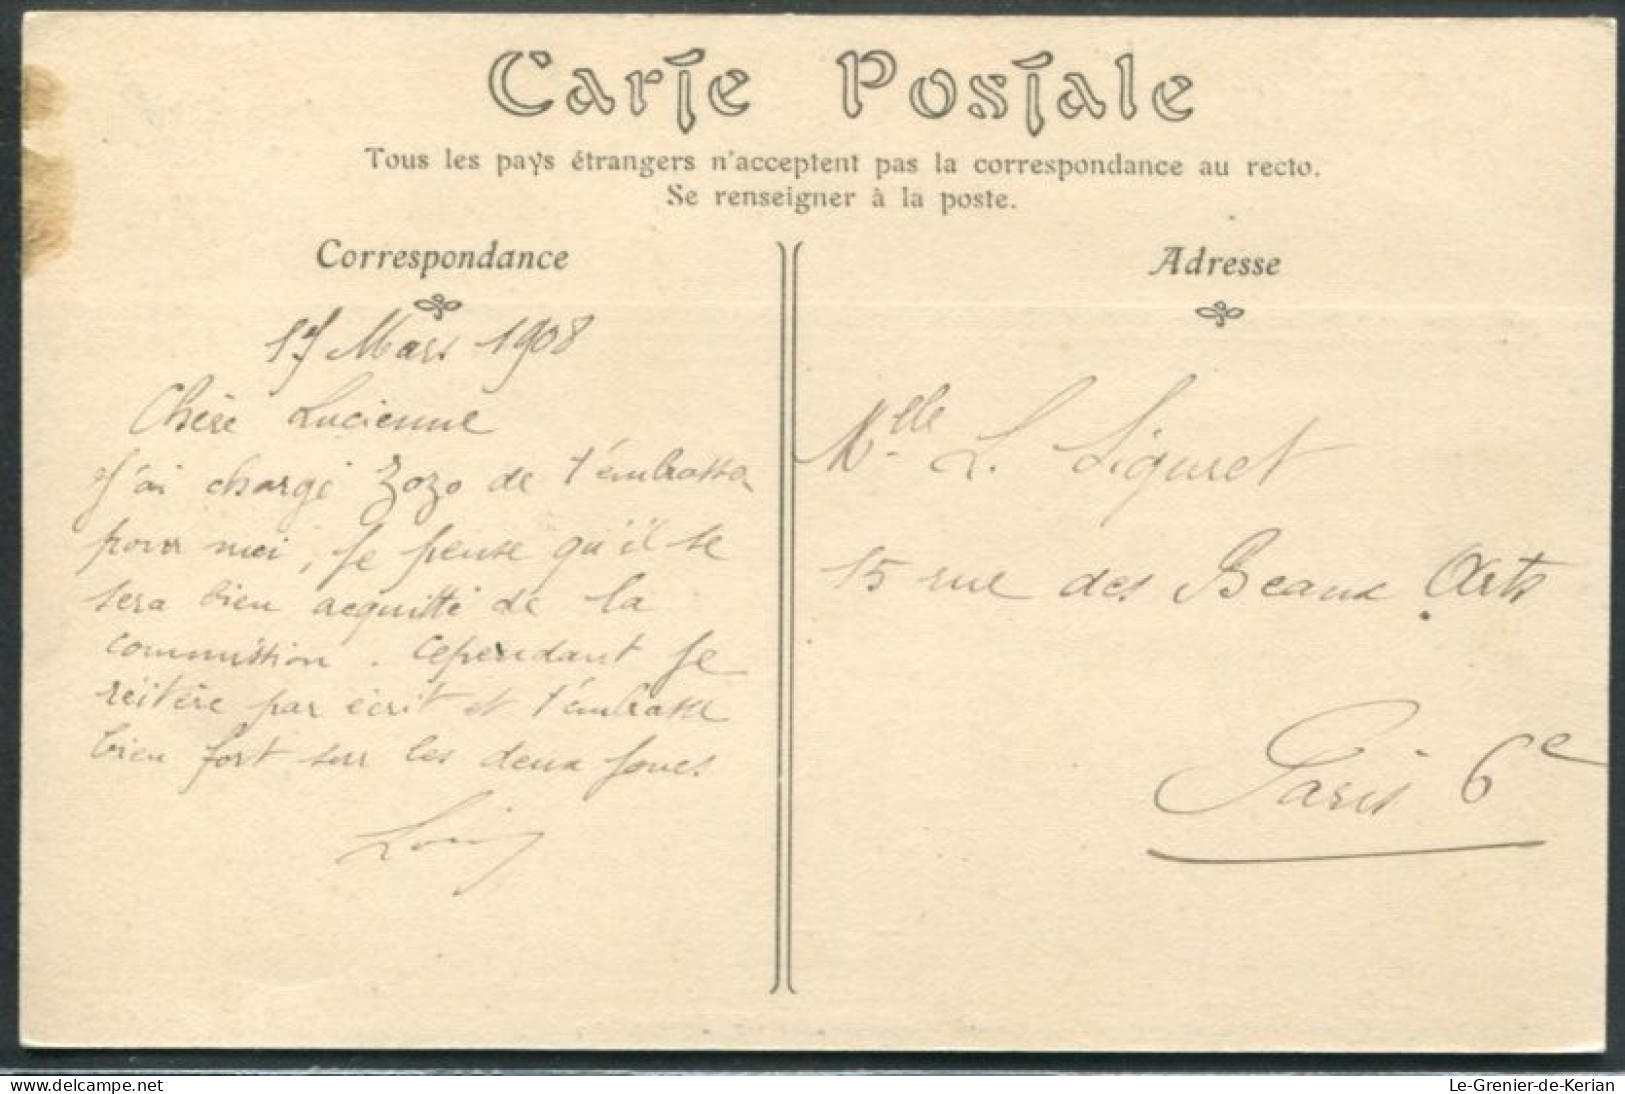 Carte Postale
Tous les pays étrangers n'acceptent pas la correspondance au recto.
Se renseigner à la poste.
Correspondance
17 Mars 1908
Chère Lucienne
J'ai chargé Zozo de t'embrasser
pour moi, je pense qu'il se
sera bien acquitté de la
commission. Cependant je
réitère par écrit et t'embrasse
bien fort sur les deux joues
Louis
Adresse
Mlle L. Siguret
15 rue des Beaux Arts
Paris 6e
delcampe.net
Le-Grenier-de-Kerian